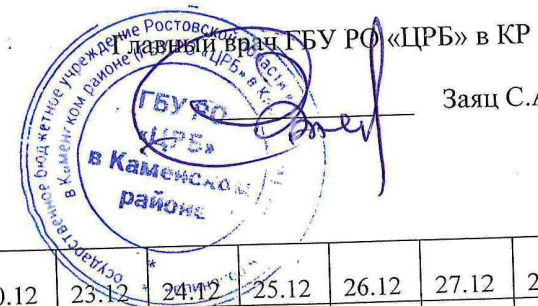 Главный врач ГБУ РО «ЦРБ» в КР
Заяц С.А
государственное бюджетное учреждение Ростовской области
в Каменском районе «ЦРБ» в К
ГБУ РО
«ЦРБ»
в Каменском
районе
23.12 24.12 25.12 26.12 27.12